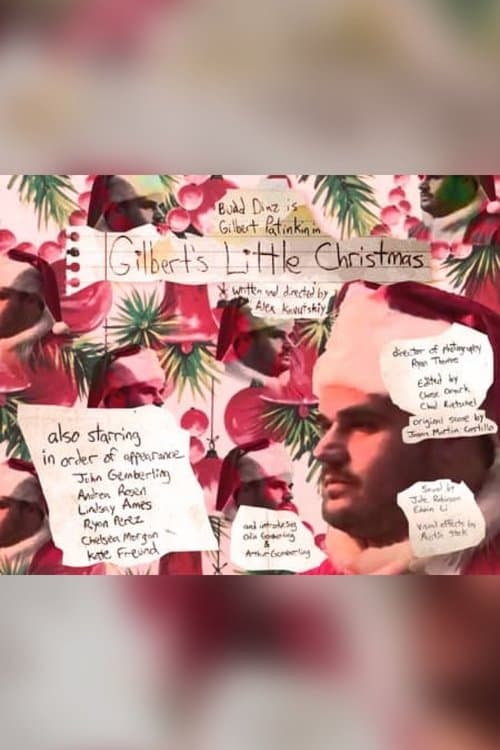 Budd Diaz is
Gilbert Patinkin in
Gilbert's Little Christmas
* written and directed by
Alex Kavutskiy
director of photography
Ryan Thomas
Edited by
Chad
original score by
Juan Martin Castillo
also starring
in order of appearance
John Gemberling
Andrea Rosen
Lindsay Ames
Ryan Perez
Chelsea Morgan
Kate Freund
and introducing
Olin Gemberling
&
Arthur Gemberling
Sound by
Jule Robinson
Edwin Li
Visual effects by